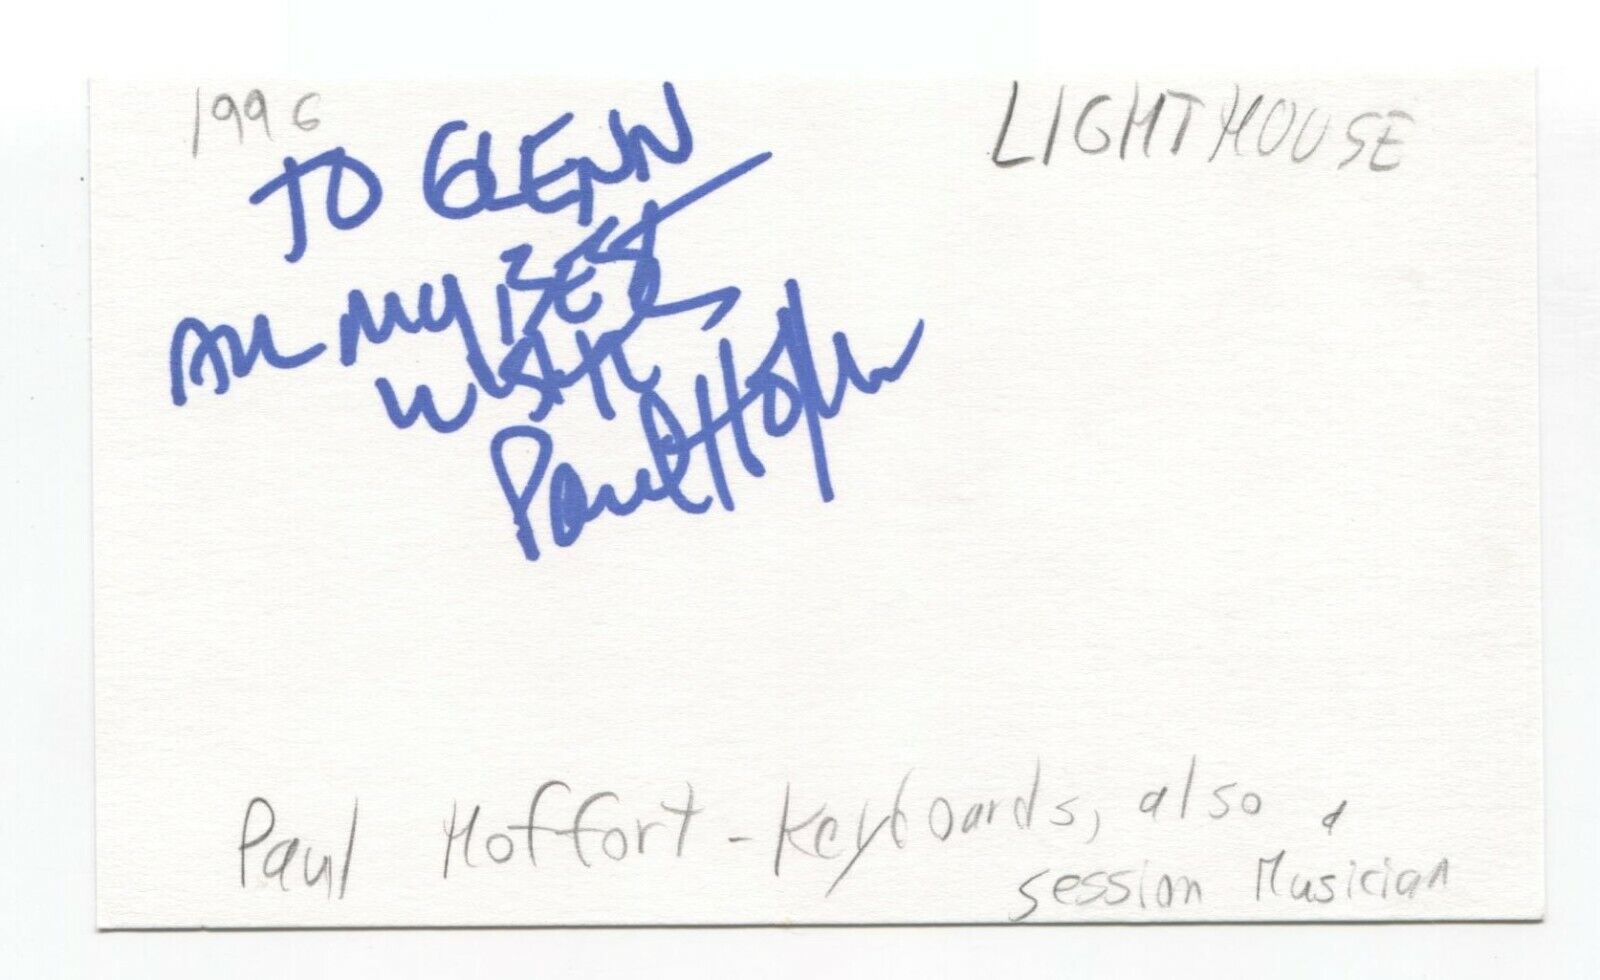 1996
LIGHTHOUSE
TO GLENN
ALL MY BEST
WISHES
Paul Hoffert
Paul Hoffort - Keyboards, also a
session Musician